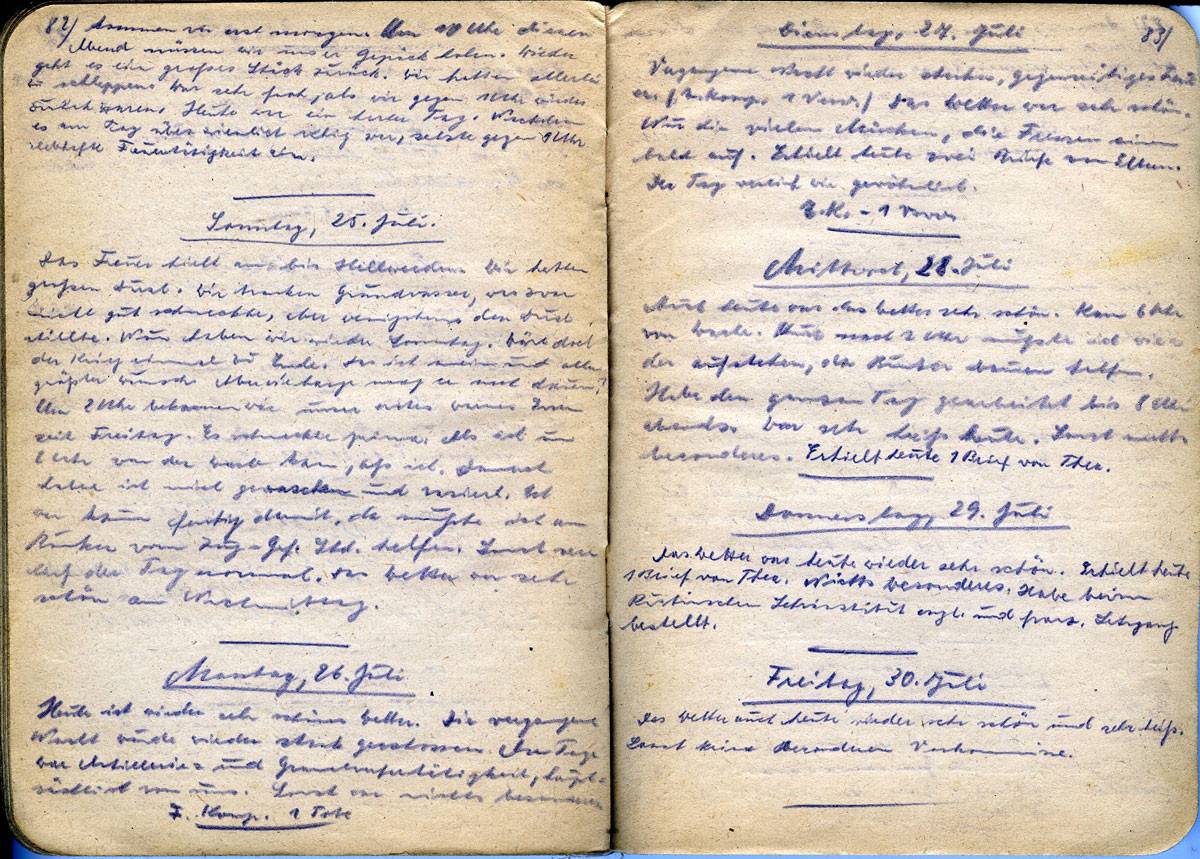 82/ kommen wir erst morgen. Um 10 Uhr diesen
Abend müssen wir unser Gepäck holen. Wieder
geht es ein großes Stück zurück. Wir hatten allerlei
zu schleppen. War sehr froh, als wir gegen 1 Uhr wieder
zurück waren. Heute war ein Tag. Nachdem
es am Tag über ziemlich ruhig war, setzte gegen Uhr
lebhafte Feuertätigkeit ein.
Sonntag, 25. Juli.
Das Feuer hielt an bis Hellwerden. Wir hatten
großen Durst. Wir tranken Grundwasser, was zwar
nicht gut schmeckte, aber wenigstens den Durst
stillte. Nun haben wir wieder Sonntag. Wäre doch
der Krieg einmal zu Ende. Das ist mein und aller
größter Wunsch. Aber wie lange mag er noch dauern?
Um 2 Uhr bekamen wir unser erstes warmes Essen
seit Freitag. Es schmeckte prima. Als ich um
Uhr von der Wache kam, aß ich. Danach
habe ich mich gewaschen und rasiert. Ich
war kaum fertig damit, da mußte ich am
Bunker vom Zug-Gef. Std. helfen. Sonst ver
lief der Tag normal. Das Wetter war sehr
schön am Nachmittag.
Montag, 26. Juli
Heute ist wieder sehr schönes Wetter. Die vergangene
Nacht wurde wieder stark geschossen. Am Tage
war Artillerie- und Granatwerfertätigkeit, haupt-
sächlich von uns. Sonst war nichts besonderes
7. Komp. 1 Tote
Dienstag, 27. Juli
83/
Vergangene Nacht wieder starkes, gegenseitiges Feu-
er. / 1 Verw. / Das Wetter war sehr schön.
Nur die vielen Mücken, die fressen einen
bald auf. Erhielt heute zwei Briefe von Eltern.
Der Tag verlief wie gewöhnlich.
7.K. - 1 Verw.
Mittwoch, 28. Juli
Auch heute war das Wetter sehr schön. Kam 6 Uhr
von Wache. Kurz nach 7 Uhr mußte ich wie-
der aufstehen, da Bunker bauen helfen.
Habe den ganzen Tag gearbeitet bis 8 Uhr
abends. War sehr heiß heute. Sonst nichts
besonderes. Erhielt heute 1 Brief von Thea.
Donnerstag, 29. Juli
Das Wetter war heute wieder sehr schön. Erhielt heute
1 Brief von Thea. Nichts besonderes. Habe beim
Rustinschen Lehrinstitut engl. und franz. Lehrgang
bestellt.
Freitag, 30. Juli
Das Wetter auch heute wieder sehr schön und sehr heiß.
Sonst keine besonderen Vorkommnisse.